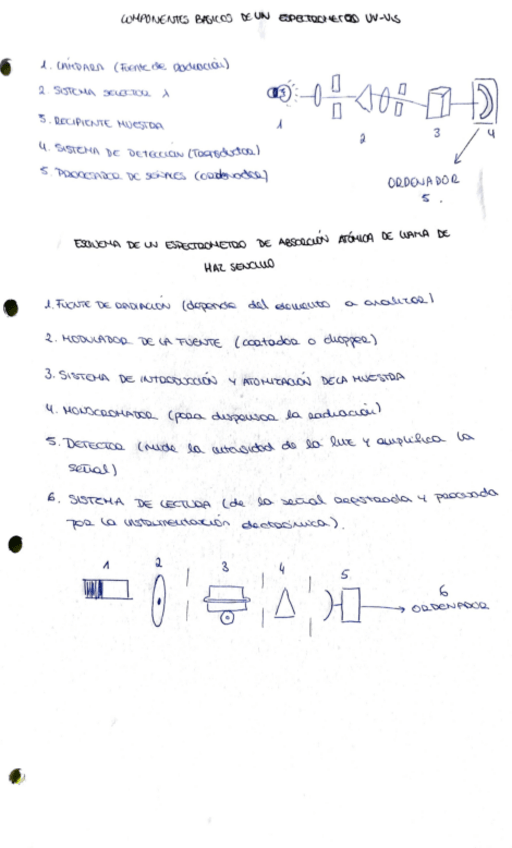 COMPONENTES BÁSICOS DE UN ESPECTROMETRO UV-VIS
1. LÁMPARA (Fuente de radiación)
2. SISTEMA SELECTOR λ
3. RECIPIENTE MUESTRA
4. SISTEMA DE DETECCIÓN (Transductor)
5. PROCESADOR DE SEÑALES (ordenador)
1
2
3
4
ORDENADOR
5.
ESQUEMA DE UN ESPECTROMETRO DE ABSORCIÓN ATÓMICA DE LLAMA DE
HAZ SENCILLO
1. FUENTE DE RADIACIÓN (depende del elemento a analizar)
2. MODULADOR DE LA FUENTE (cortador o chopper)
3. SISTEMA DE INTRODUCCIÓN Y ATOMIZACIÓN DE LA MUESTRA
4. MONOCROMADOR (para dispersar la radiación)
5. DETECTOR (mide la intensidad de la luz y amplifica la
señal)
6. SISTEMA DE LECTURA (de la señal registrada y procesada
por la instrumentación electrónica).
1 2 3 4 5
6
ORDENADOR